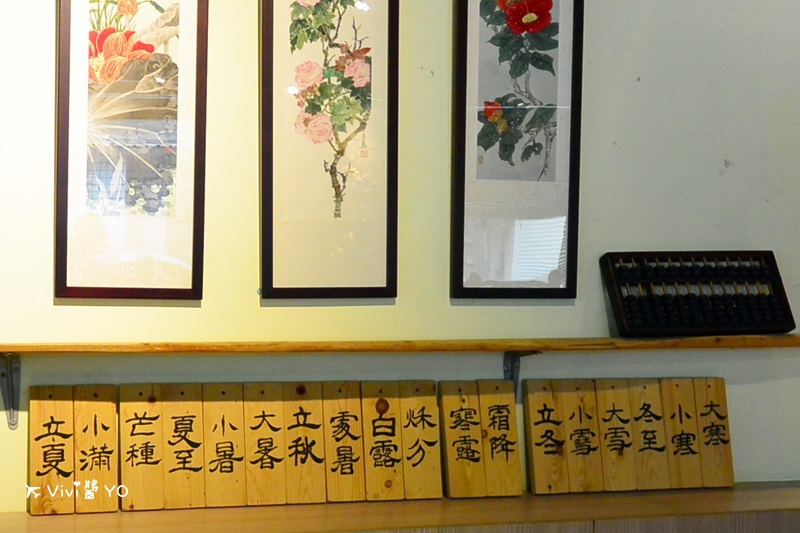 立夏
小滿
芒種
夏至
小暑
大暑
立秋
處暑
白露
秌分
寒露
霜降
立冬
小雪
大雪
冬至
小寒
大寒
Vivi醬 YO